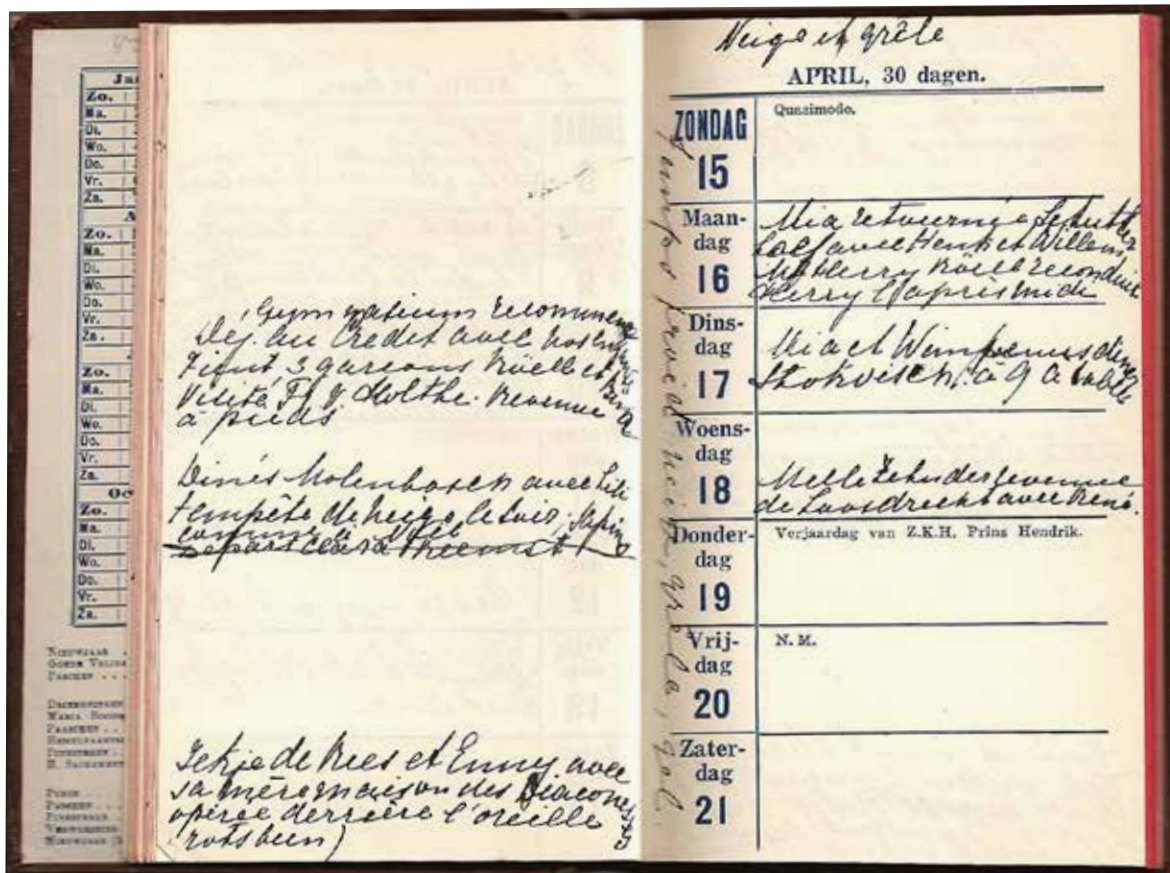 Ja
Zo.
Ma.
Di.
Wo.
Do.
Vr.
Za.
A
Zo.
Ma.
Di.
Wo.
Do.
Vr.
Za.
Zo.
Ma.
Di.
Wo.
Do.
Vr.
Za.
Oc
Zo.
Ma.
Di.
Wo.
Do.
Vr.
Za.
Nieuwjaar
Paschen
Gymnasium recommence
Dej. au Credit avec
3 garcons Röell et
Visite Holthe. Revenue
à pieds
Dinés Molenbosch avec Lili
tempête de neige le soir. Sapin
comme à
depart
de Rees et Enny avec
sa mère maison des Diaconesses
opérée derrière l'oreille
(rotsbeen)
Neige et grêle
APRIL, 30 dagen.
ZONDAG
15
Quasimodo.
Maan-
dag
16
Mia retournée
Golf avec Henk et Willem,
Merry Röell reconduit
Merry l'après midi
Dins-
dag
17
Mia et Wim
Stokvisch. à 9 à table
Woens-
dag
18
Melle Zehnder revenue
de Loosdrecht avec René.
Donder-
dag
19
Verjaardag van Z.K.H. Prins Hendrik.
Vrij-
dag
20
N. M.
Zater-
dag
21
Temps froid neige, grêle, gel.